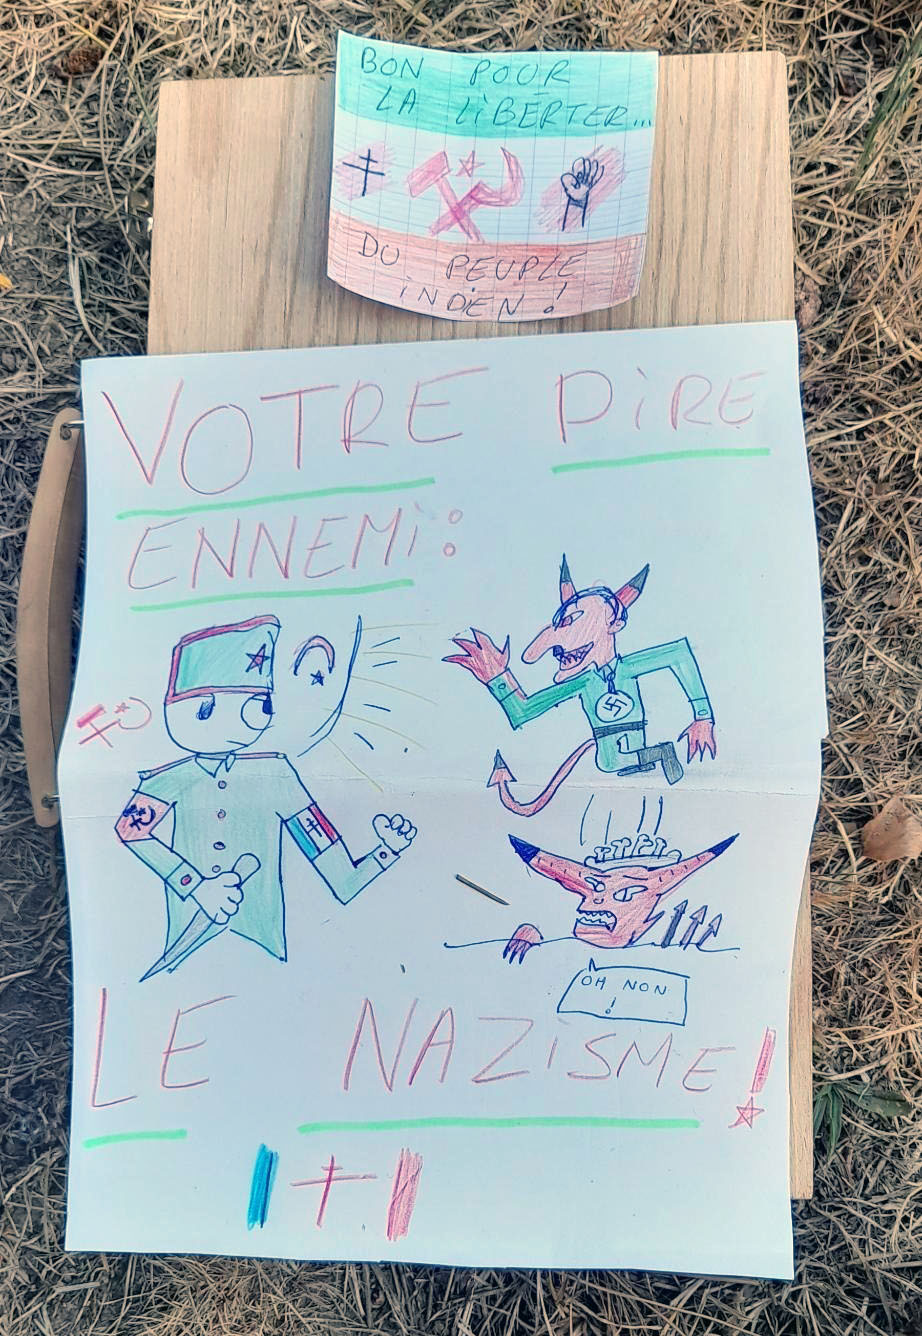 BON POUR
LA LiBERTER...
DU PEUPLE
iNDiEN !
VOTRE PiRE
ENNEMi :
OH NON
!
LE NAZiSME !